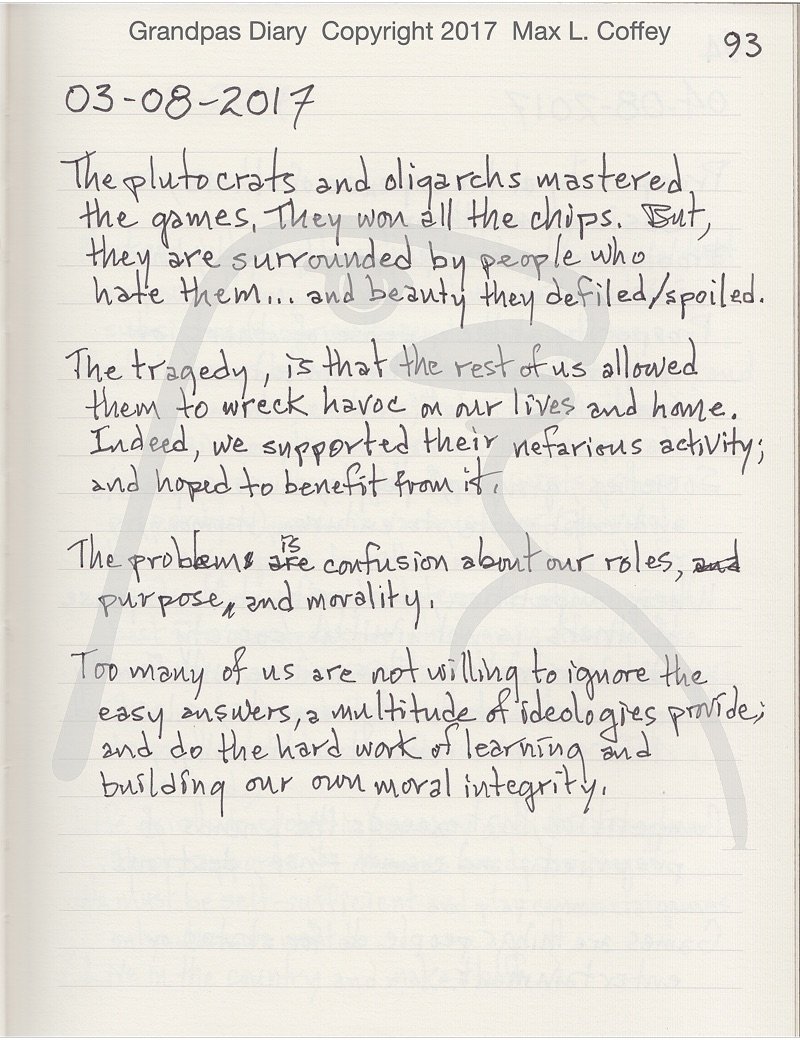 Grandpas Diary Copyright 2017 Max L. Coffey
93
03-08-2017
The plutocrats and oligarchs mastered
the games. They won all the chips. But,
they are surrounded by people who
hate them... and beauty they defiled/spoiled.
The tragedy, is that the rest of us allowed
them to wreck havoc on our lives and home.
Indeed, we supported their nefarious activity;
and hoped to benefit from it.
The problem is are confusion about our roles, and
purpose, and morality.
Too many of us are not willing to ignore the
easy answers, a multitude of ideologies provide;
and do the hard work of learning and
building our own moral integrity.